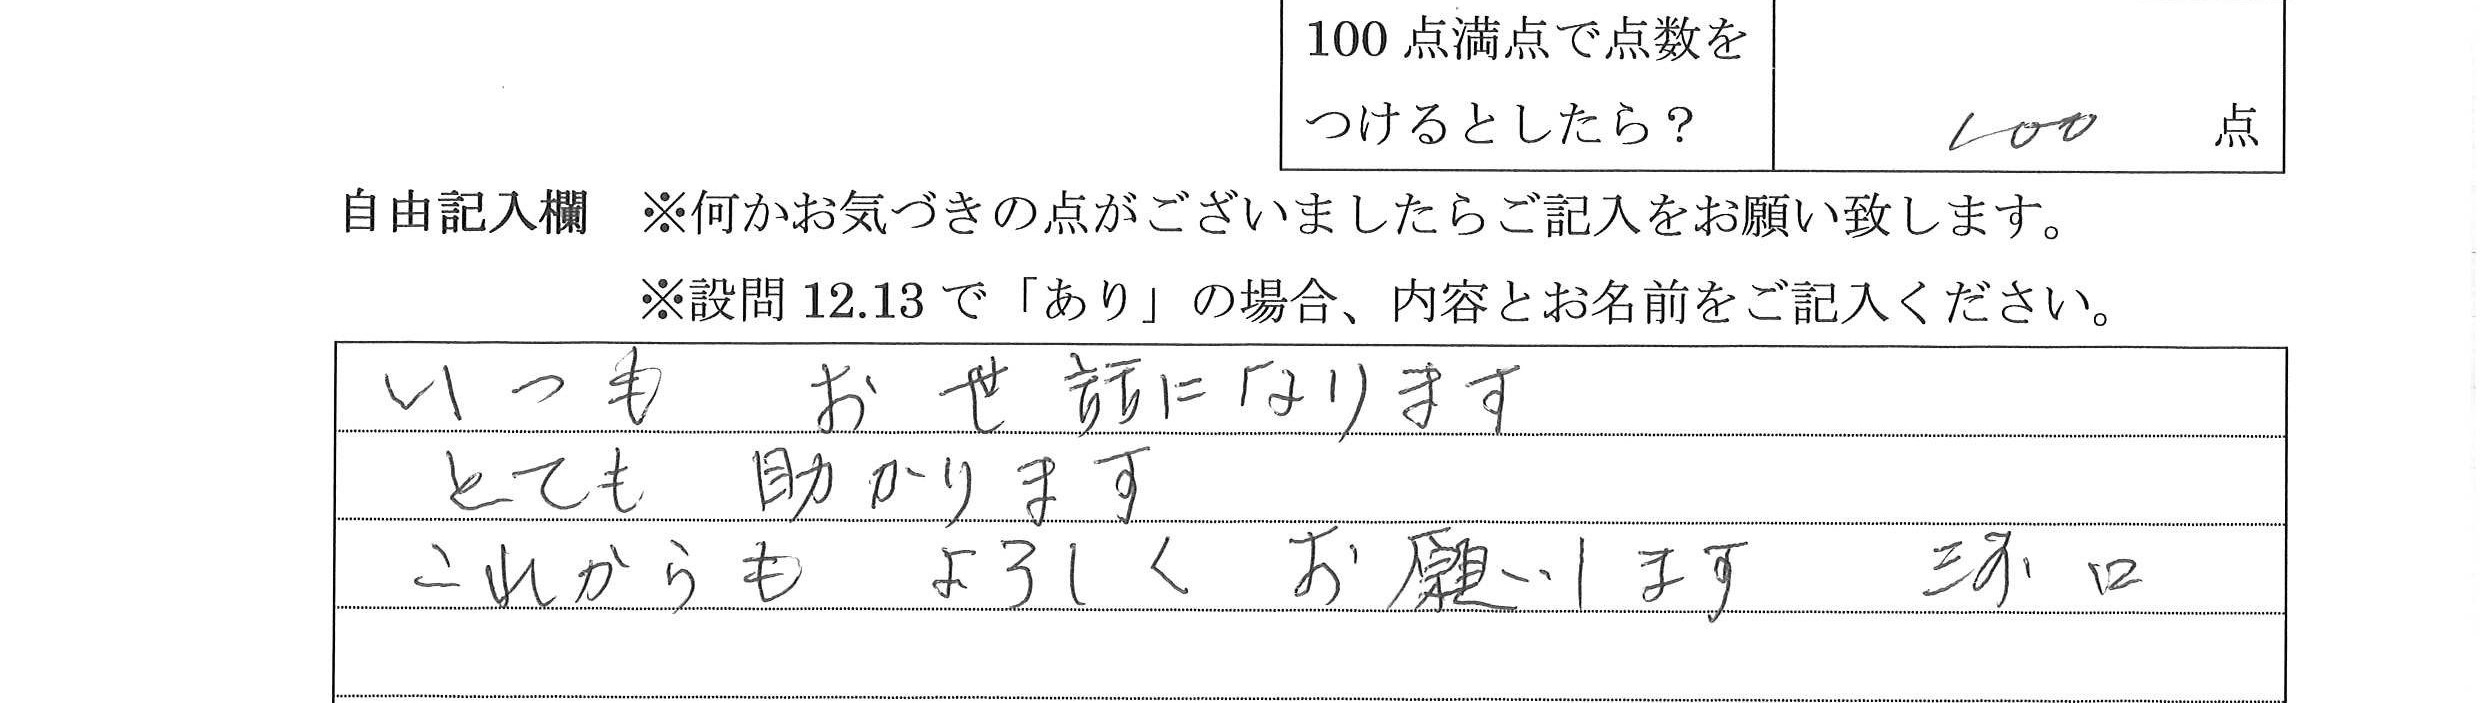 100 点満点で点数を
つけるとしたら？ 100 点
自由記入欄 ※何かお気づきの点がございましたらご記入をお願い致します。
※設問 12.13 で「あり」の場合、内容とお名前をご記入ください。
いつも お世話になります
とても 助かります
これからも よろしく お願いします 河口